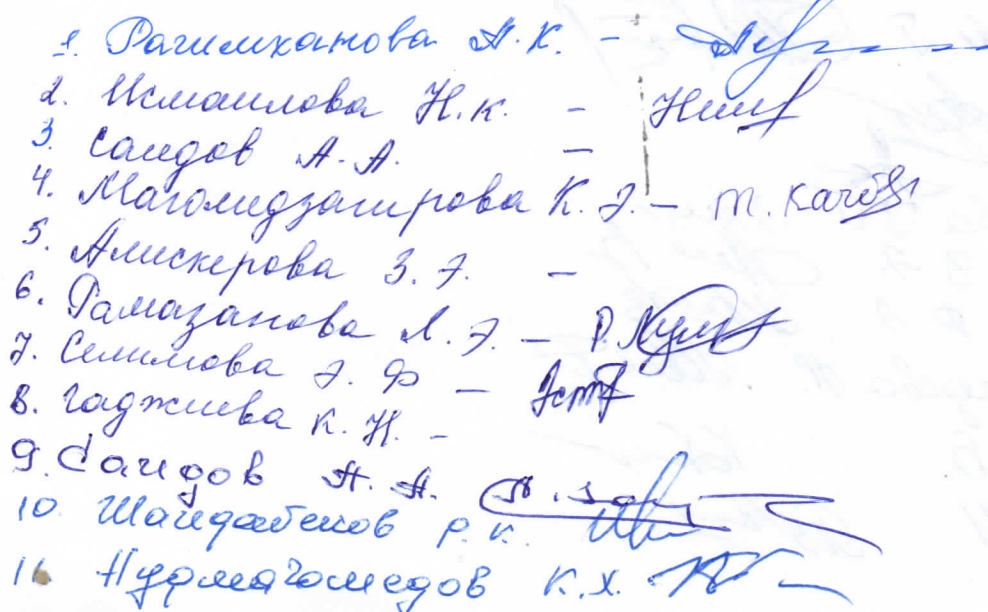 1. Рагимханова А.К. -
2. Исмаилова Н.К. -
3. Саидов А.А. -
4. Магомедзагирова К.Э. - м.
5. Алискерова З.Э. -
6. Рамазанова Л.Э. - Р.
7. Селимова Э.Ф -
8. Гаджиева К.Н. -
9. Саидов А.А.
10. Шаидабеков Р.К.
11. Нурмагомедов К.Х.